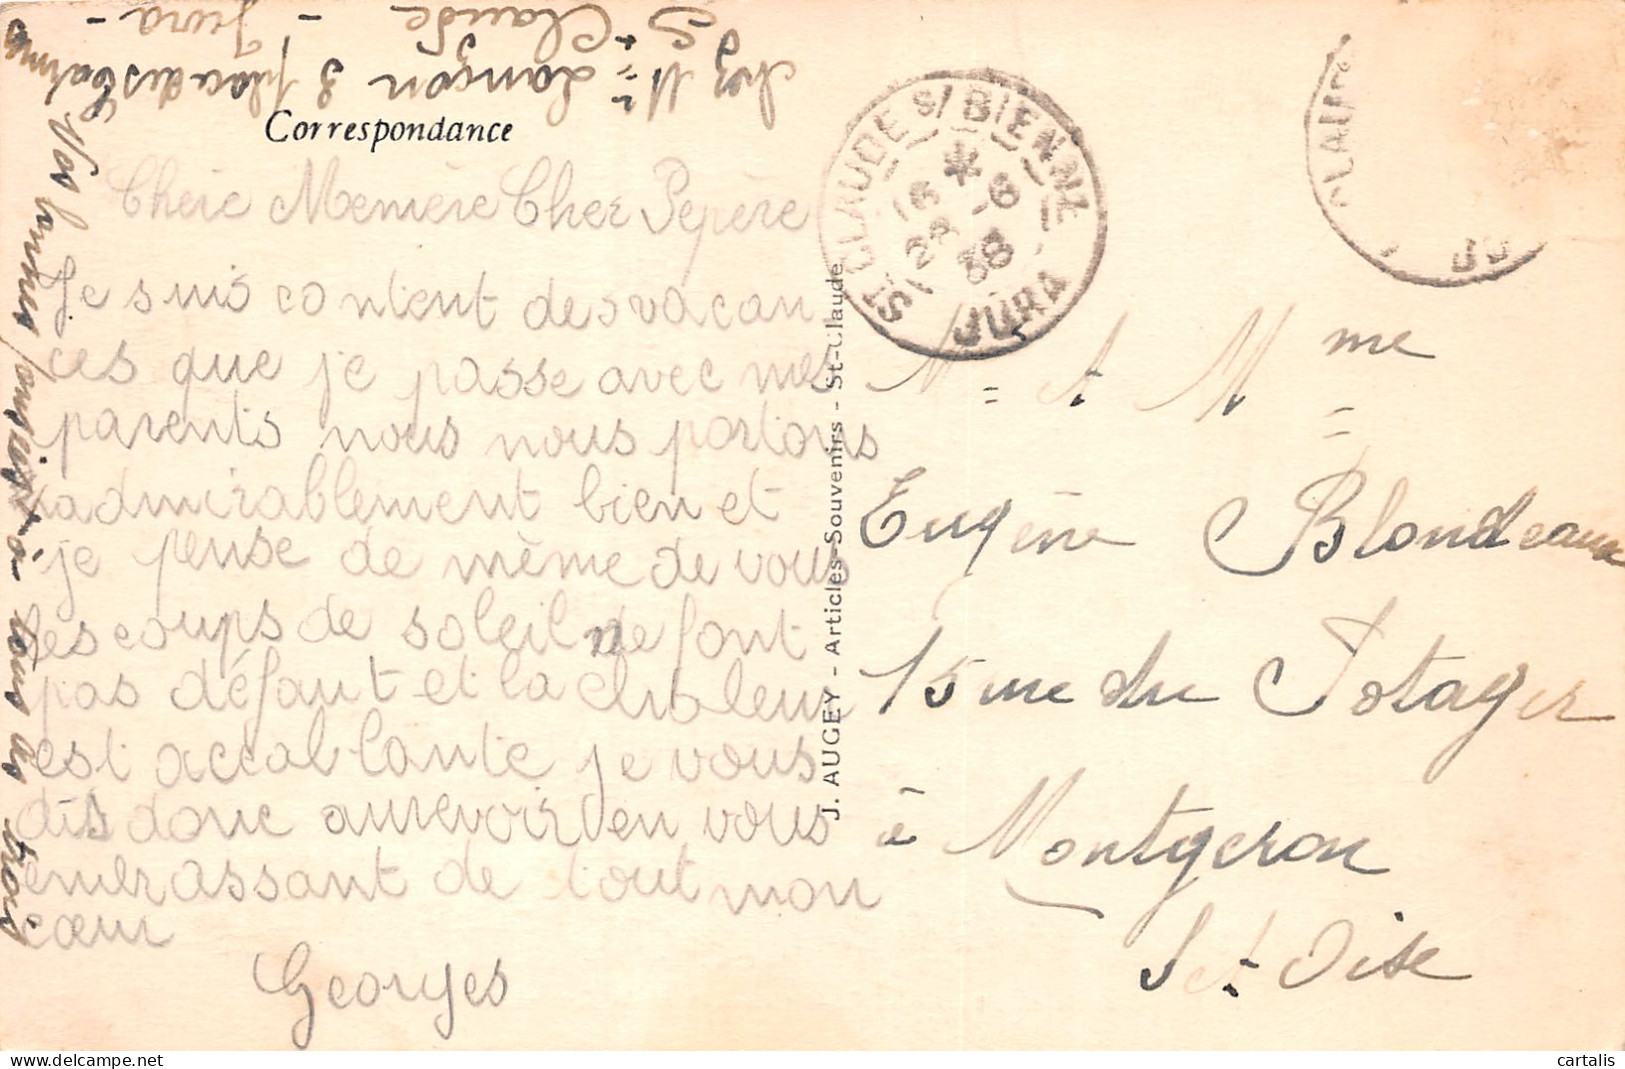 chez Mr Lançon 3 place des Carmes
St Claude - Jura -
Correspondance
Chère Memère Cher Pepère
Je suis content des vacan
ces que je passe avec mes
parents nous nous portons
admirablement bien et
je pense de même de vous
les coups de soleil ne font
pas défaut et la chaleur
est accablante je vous
dis donc aurevoir en vous
embrassant de tout mon
cœur
Georges
Nos bonnes pensées à tous les trois
J. AUGEY - Articles-Souvenirs - St-Claude
ST CLAUDE S/ BIENNE
16 * 28 -6 38
JURA
CLAUDE
JU
Mr et Mme
Eugène Blondeaux
15 rue du Potager
à Montgeron
S et Oise
cartalis